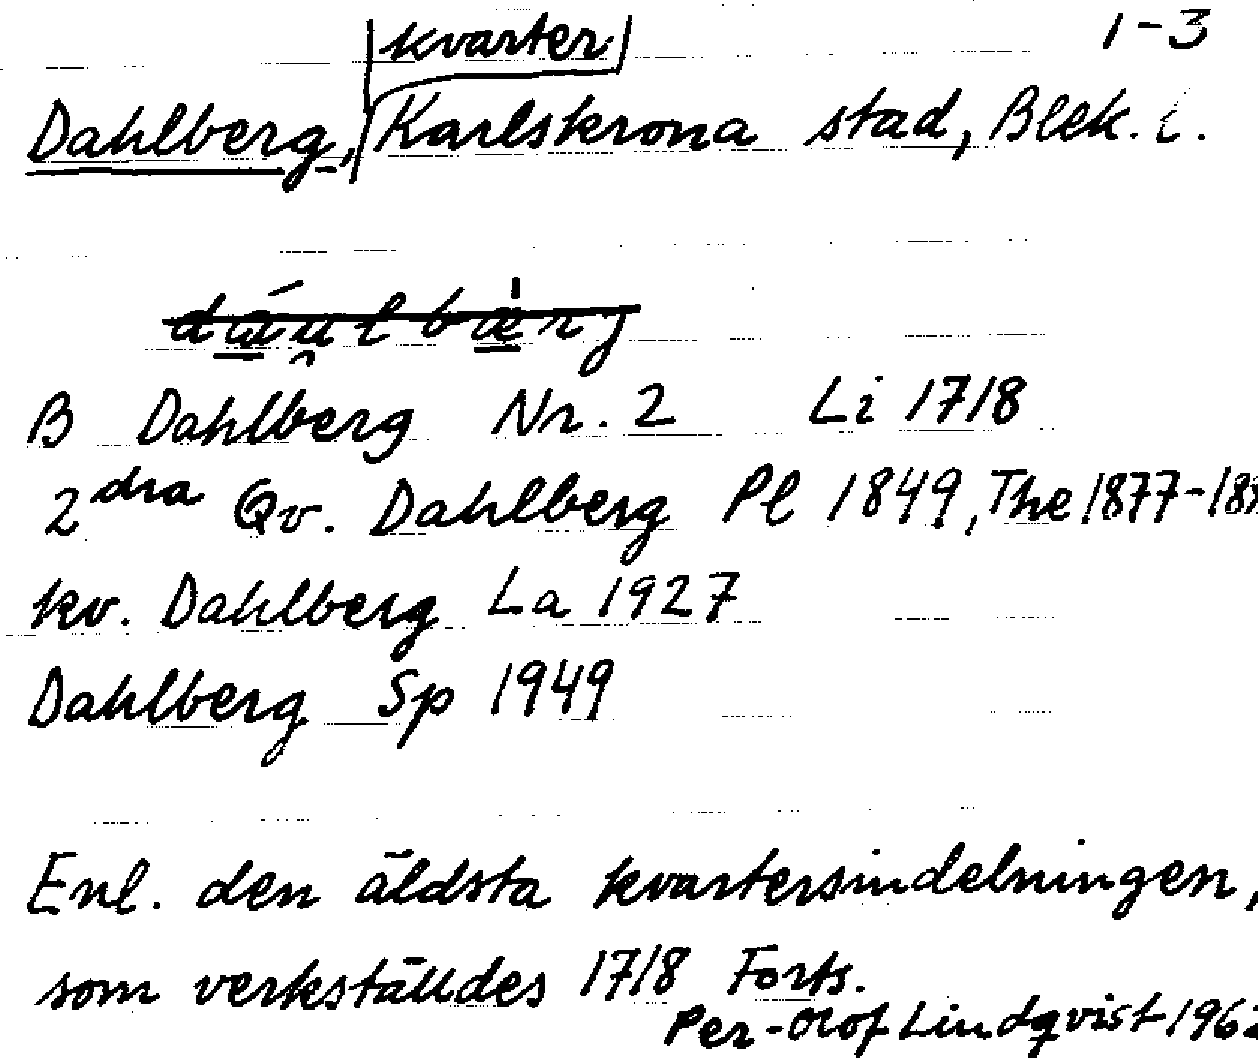 kvarter 1-3
Dahlberg, Karlskrona stad, Blek. l.
B Dahlberg Nr. 2 Li 1718
2dra Qv. Dahlberg Pl 1849, The 1877-
kv. Dahlberg La 1927
Dahlberg Sp 1949
Enl. den äldsta kvartersindelningen,
som verkställdes 1718 Forts.
Per-Olof Lindqvist 196